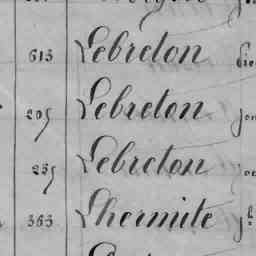 613 Lebreton
209 Lebreton
259 Lebreton
363 Lhermite